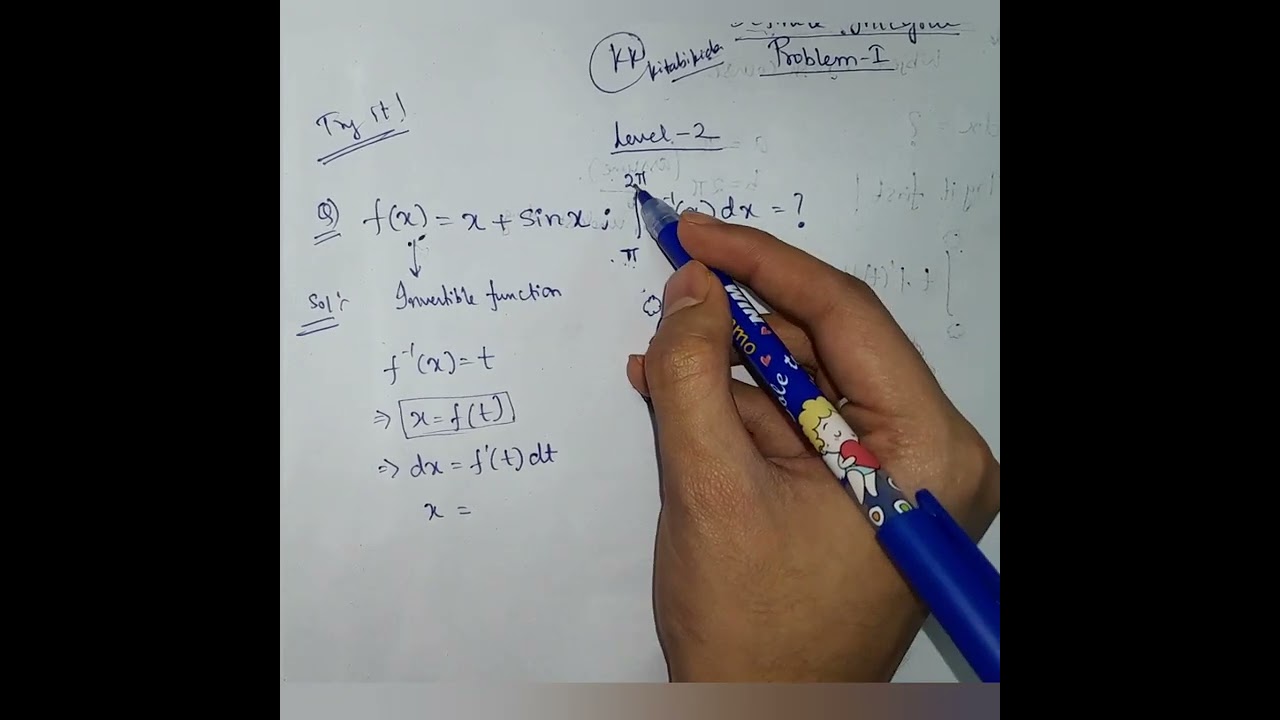 KK kitabikida
Problem-I
Try it!
Level-2
Q) f(x) = x + sinx ; ∫ π 2π (x) dx = ?
Solⁿ: Invertible function
f⁻¹(x) = t
⇒ x = f(t)
⇒ dx = f'(t) dt
x =